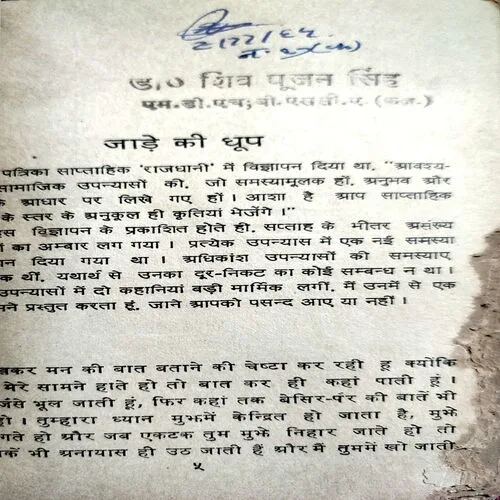 2/22/62
डा० शिव पूजन सिंह
एम.डी.एच; बी.एससी.ए. (कल.)
जाड़े की धूप
पत्रिका साप्ताहिक 'राजधानी' में विज्ञापन दिया था, "आवश्य-
सामाजिक उपन्यासों की, जो समस्यामूलक हों, अनुभव और
के आधार पर लिखे गए हों। आशा है आप साप्ताहिक
के स्तर के अनुकूल ही कृतियां भेजेंगे।"
इस विज्ञापन के प्रकाशित होते ही, सप्ताह के भीतर असंख्य
ों का अम्बार लग गया। प्रत्येक उपन्यास में एक नई समस्या
न दिया गया था। अधिकांश उपन्यासों की समस्याए
क थीं, यथार्थ से उनका दूर-निकट का कोई सम्बन्ध न था।
उपन्यासों में दो कहानियां बड़ी मार्मिक लगीं, मैं उनमें से एक
मने प्रस्तुत करता हूं, जाने आपको पसन्द आए या नहीं।
बकर मन की बात बताने की चेष्टा कर रही हू क्योंकि
मेरे सामने हाते हो तो बात कर ही कहां पाती हूं।
जैसे भूल जाती हूं, फिर कहां तक बेसिर-पैर की बातें भी
हो। तुम्हारा ध्यान मुझमें केन्द्रित हो जाता है, मुझे
गते हो और जब एकटक तुम मुझे निहार जाते हो तो
कें भी अनायास ही उठ जाती हैं और मैं तुममें खो जाती
५